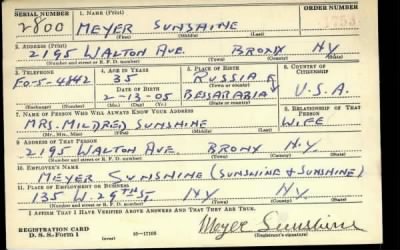 SERIAL NUMBER 1. NAME (Print) ORDER NUMBER
2800 MEYER SUNSHINE 1753
(First) (Middle) (Last)
2. ADDRESS (Print)
2195 WALTON AVE. BRONX NY
(Number and street or R. F. D. number) (Town) (County) (State)
3. TELEPHONE 4. AGE IN YEARS 5. PLACE OF BIRTH 6. COUNTRY OF CITIZENSHIP
FO-5-4842 35 RUSSIA
DATE OF BIRTH (Town or county)
2-13-05 BESSARABIA U.S.A.
(Exchange) (Number) (Mo.) (Day) (Yr.) (State or country)
7. NAME OF PERSON WHO WILL ALWAYS KNOW YOUR ADDRESS 8. RELATIONSHIP OF THAT PERSON
MRS. MILDRED SUNSHINE WIFE
(Mr., Mrs., Miss) (First) (Middle) (Last)
9. ADDRESS OF THAT PERSON
2195 WALTON AVE. BRONX N.Y.
(Number and street or R. F. D. number) (Town) (County) (State)
10. EMPLOYER'S NAME
MEYER SUNSHINE (SUNSHINE & SUNSHINE)
11. PLACE OF EMPLOYMENT OR BUSINESS
135 W. 29TH ST. NY NY.
(Number and street or R. F. D. number) (Town) (County) (State)
I AFFIRM THAT I HAVE VERIFIED ABOVE ANSWERS AND THAT THEY ARE TRUE.
REGISTRATION CARD
D. S. S. Form 1 16—17105 Meyer Sunshine
(Registrant's signature)